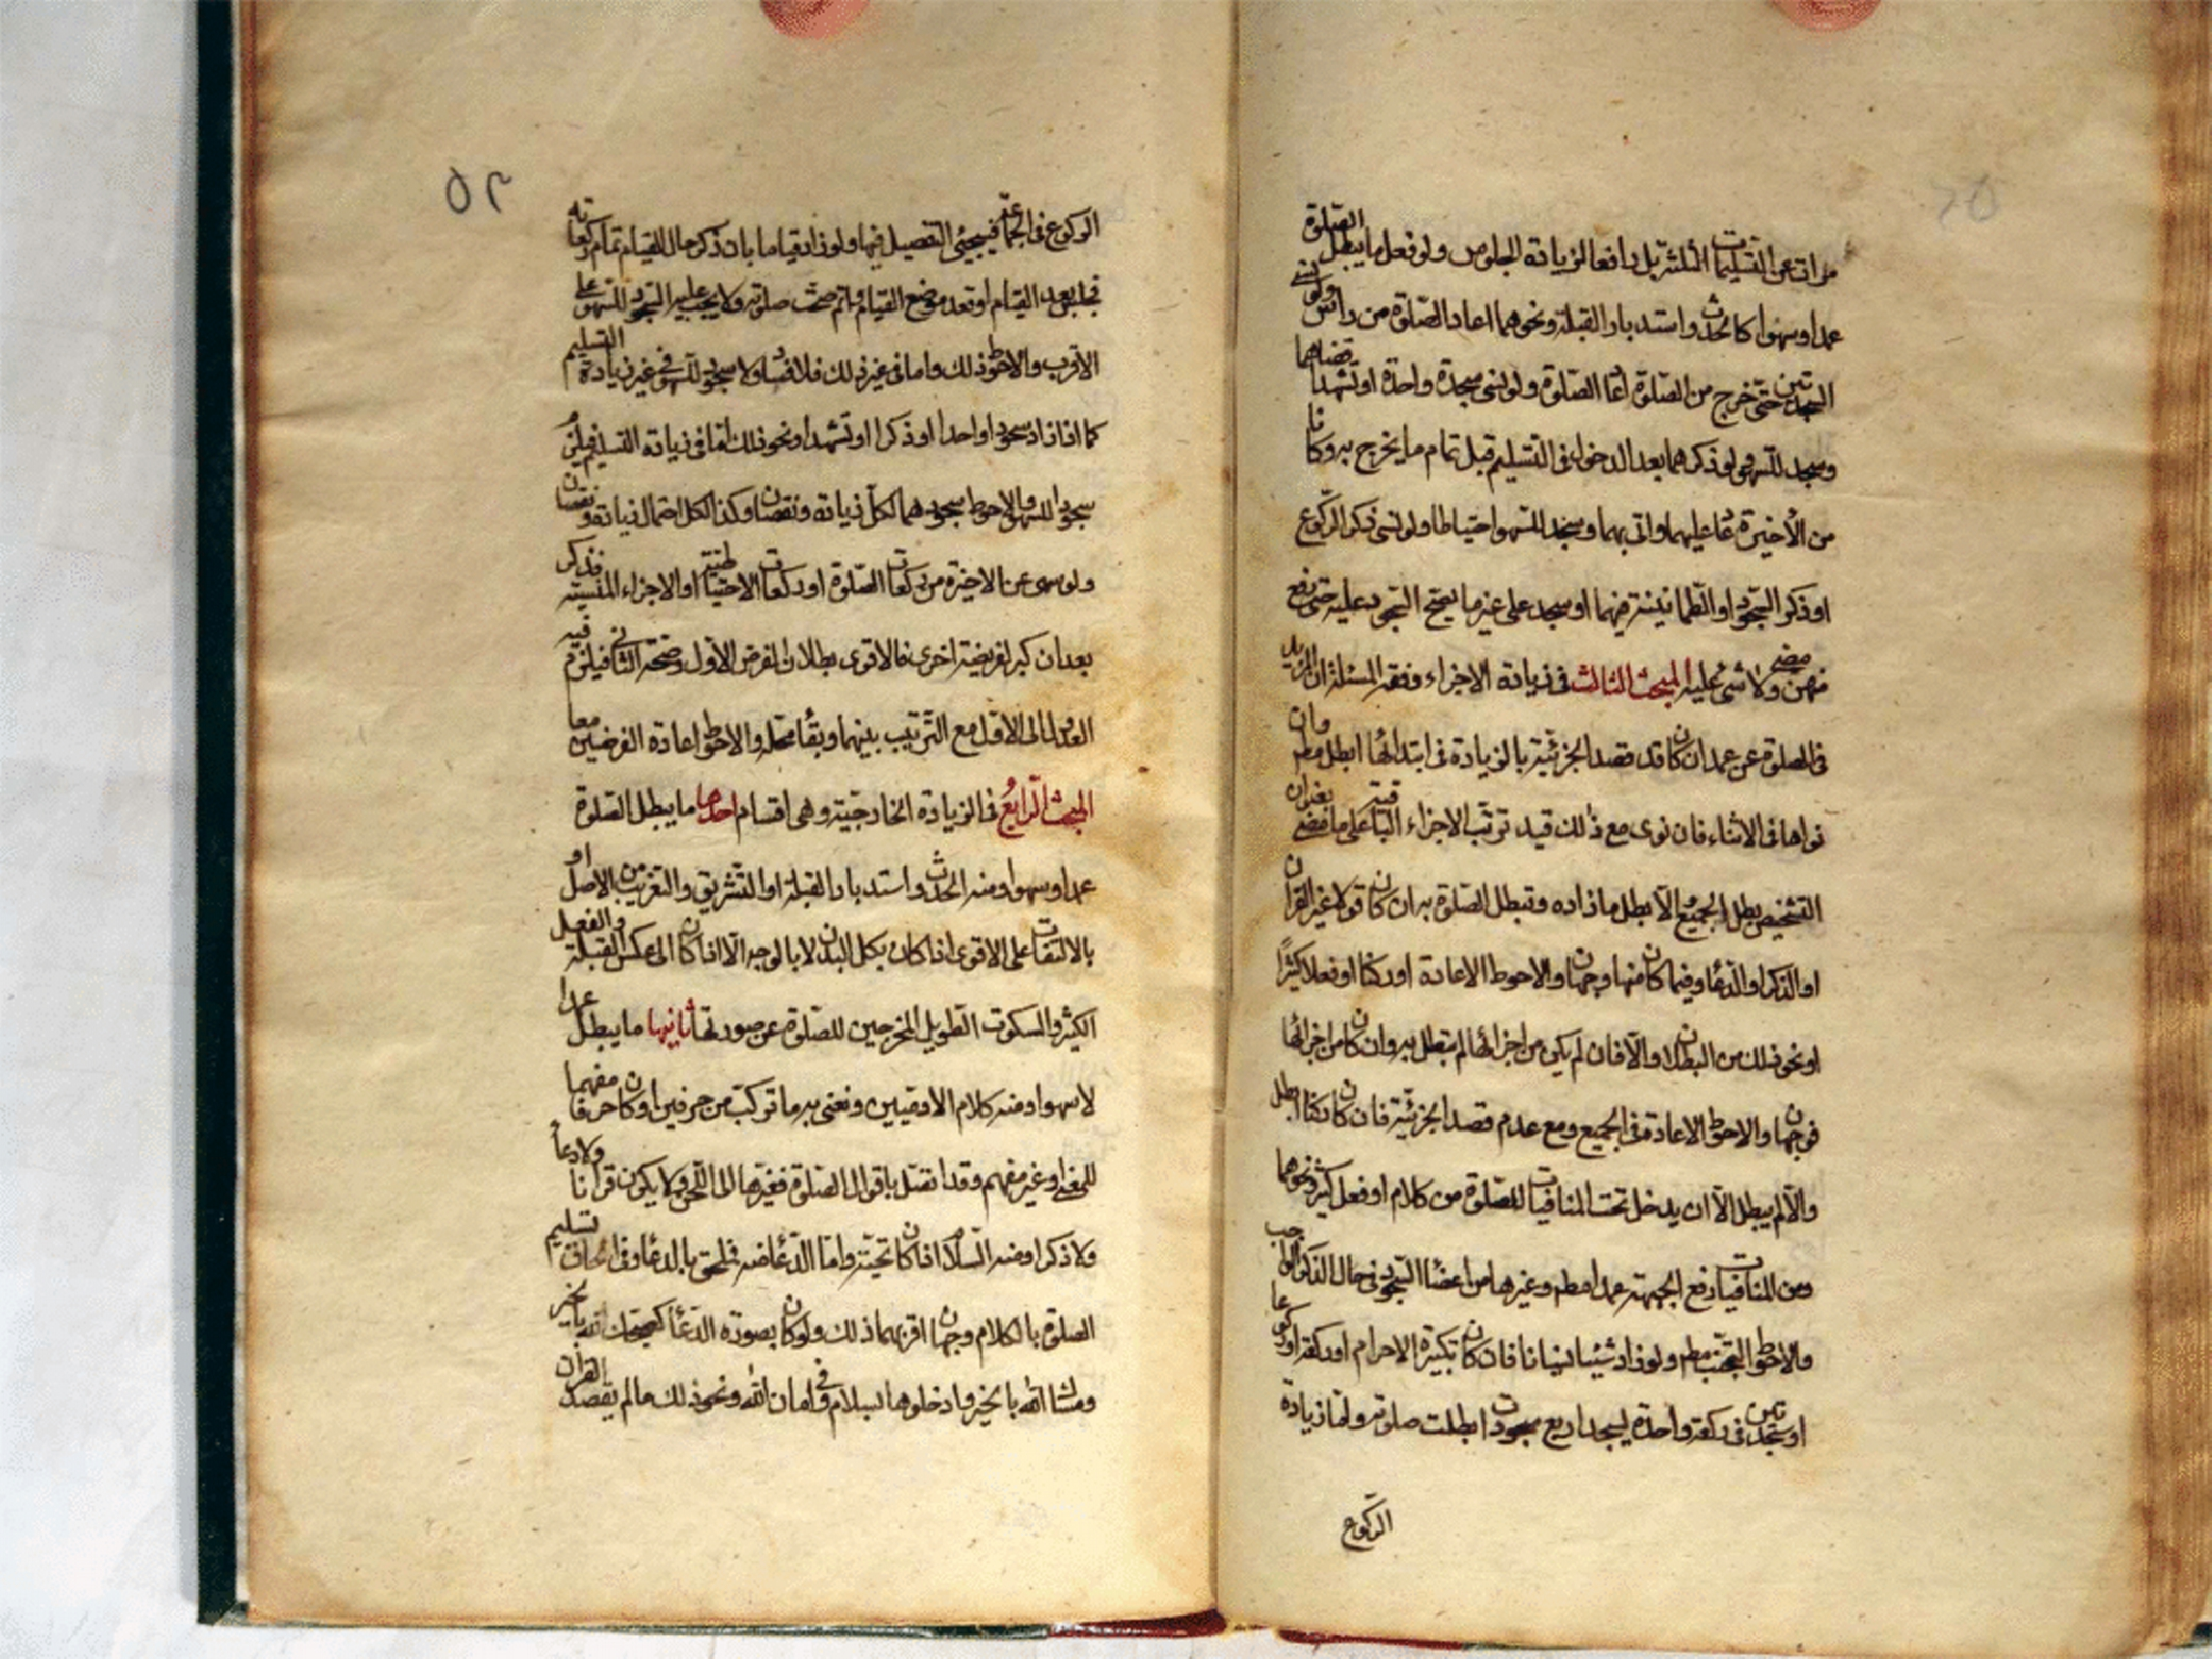 مرات عن التسليمات الثلث بل دافعا لزيادة الجلوس ولو فعل ما يبطل الصلوة
عمدا وسهوا كالحدث واستدبار القبلة ونحوهما اعاد الصلوة من رأس ولو نسي
السجدتين حتى خرج من الصلوة اعاد الصلوة ولو نسي سجدة واحدة او تشهدا قضاهما
وسجد للسهو ولو ذكرهما بعد الدخول في التسليم قبل تمام ما يخرج به وكانا
من الأخيرة عاد عليهما واتى بهما وسجد للسهو احتياطا ولو نسي ذكر الركوع
او ذكر السجود او الطمانينة فيهما او سجد على غير ما يصح السجود عليه حتى رفع
منهن مضى ولا شئ عليه المبحث الثالث في زيادة الاجزاء وفقه المسئلة ان المزيد
في الصلوة عن عمد ان كان قد قصد الجزئية بالزيادة في ابتدائها ابطل مطم وان
نواها في الاثناء فان نوى مع ذلك قيد ترتب الاجزاء الباقية على ما مضى بعنوان
التشخيص بطل الجميع والا بطل ما زاده وتبطل الصلوة به ان كان قولا غير القران
او الذكر او الدعاء وفيما كان منها وجهان والاحوط الاعادة او ركنا او فعلا كثيرًا
او نحو ذلك من البطلان والا فان لم يكن من اجزائها لم تبطل به وان كان من اجزائها
فوجهان والاحوط الاعادة في الجميع ومع عدم قصد الجزئية فان كان ركنا ابطل
والا لم يبطل الا ان يدخل تحت المنافيات للصلوة من كلام او فعل كثير ونحوهما
ومن المنافيات رفع الجبهة عمدا مطم وغيرها من اعضاء السجود في حال الذكر الواجب
والاحوط التجنب مطم ولو زاد شيئا نسيانا فان كان تكبيرة الاحرام او ركعة او ركوعا
او سجدتين في ركعة واحدة ليسجد اربع سجودات ابطلت صلوته واما زيادة
الركوع
٥٢
الركوع في الجماعة فسيجيئ التفصيل فيها ولو زاد قياما بان ذكر حال القيام تمام ركعاته
فجلس بعد القيام او قعد موضع القيام فاتم صحت صلوته ولا يجب عليه السجود للسهو على
الاقرب والاحوط ذلك واما في غير ذلك فلا فساد ولا سجود للسهو في غير زيادة التسليم
كما اذا زاد سجودا واحدا او ذكرا او تشهدا ونحو ذلك اما في زيادة التسليم فيلزم
سجود السهو والاحوط سجودهما لكل زيادة ونقصان وكذا لكل احتمال زيادة ونقصان
ولو سهى عن الاخيرة من ركعات الصلوة او ركعات الاحتياطية او الاجزاء المنسية فذكر
بعد ان كبر لفريضة اخرى فالاقوى بطلان الفرض الاول وصحة الثاني فيلزم فيه
العدول الى الاول مع الترتيب بينهما وبقاء محله والاحوط اعادة الفرضين معا
المبحث الرابعُ في الزيادة الخارجية وهي اقسام احدها ما يبطل الصلوة
عمدا وسهوا ومنه الحدث واستدبار القبلة او التشريق والتغريب من الاصل او
بالالتفات على الاقوى اذا كان بكل البدن لا بالوجه الا اذا كان الى عكس القبلة والفعل
الكثير والسكوت الطويل المخرجين للصلوة عن صورتها ثانيها ما يبطل عمدا
لا سهوا ومنه كلام الادميين ونعني به ما تركب من حرفين او كان حرفا مفهما
للمعنى او غير مفهم وقد اتصل باقوال الصلوة فغيرها الى اللحن ولا يكون قرانا ولا دعاءً
ولا ذكرا ومنه السلام اذا كان تحية واما الدعاء منه فملحق بالدعاء وفي الحاق تسليم
الصلوة بالكلام وجهان اقربهما ذلك ولو كان بصورة الدعاء كصبحك الله بالخير
ومساك الله بالخير وادخلوها بسلام وفي امان الله ونحو ذلك مالم يقصد القران